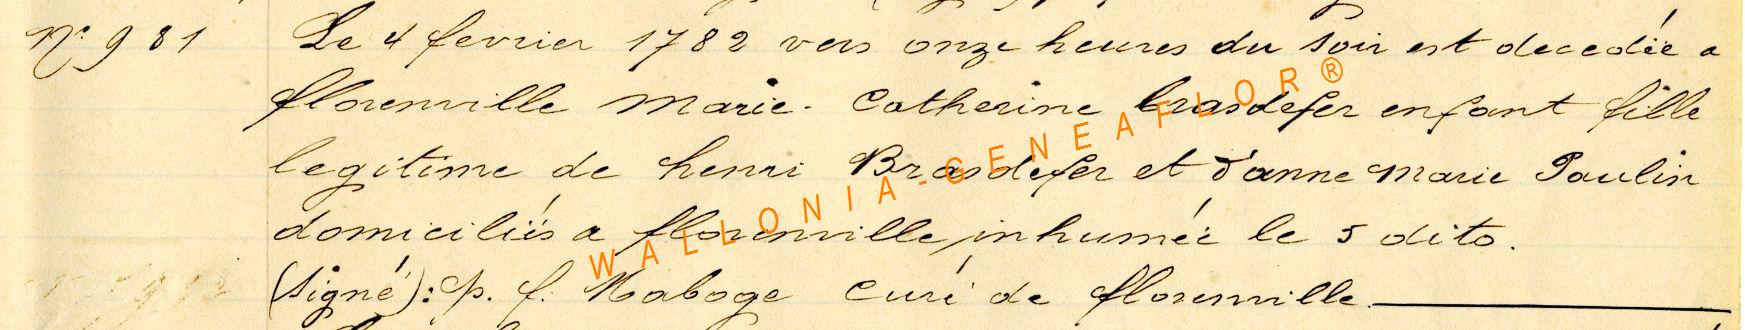 N° 981 Le 4 fevrier 1782 vers onze heures du soir est decedée a
florenville Marie-Catherine brasdefer enfant fille
legitime de henri Brasdefer et d'anne Marie Paulin
domiciliés a florenville, inhumée le 5 dito.
(signé): p. f. Maboge Curé de florenville.
WALLONIA-GENEAFLOR®